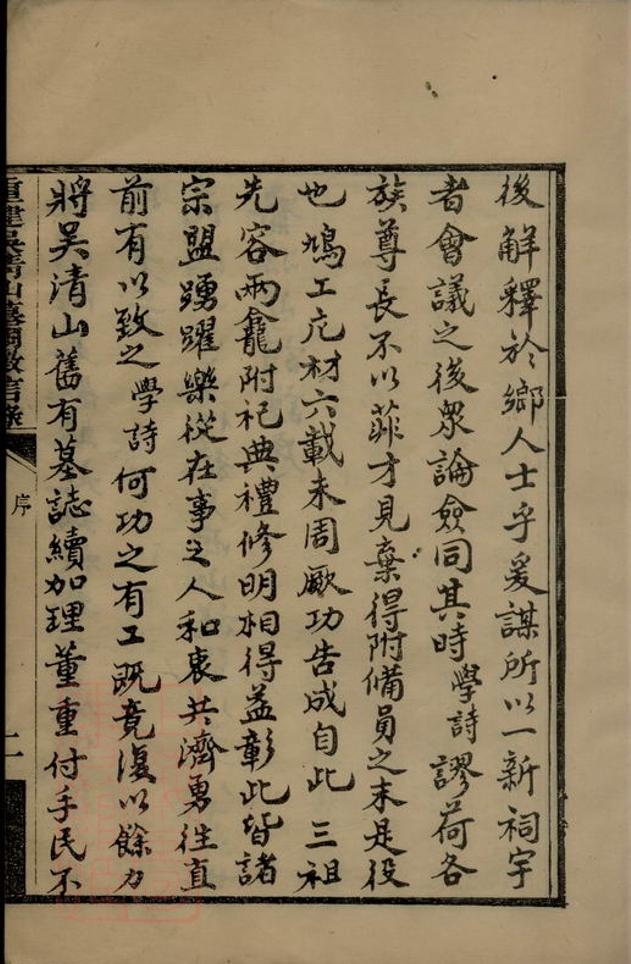 後解釋於鄉人士乎爰謀所以一新祠宇
者會議之後衆論僉同其時學詩謬荷各
族尊長不以菲才見棄得附備員之末是役
也鳩工庀材六載未周厥功告成自此三祖
先容兩龕附祀典禮修明相得益彰此皆諸
宗盟踴躍樂從在事之人和衷共濟勇往直
前有以致之學詩何功之有工既竟復以餘力
將吴清山舊有墓誌續加理董重付手民不
重建吳清山墓祠徵信錄
序
二